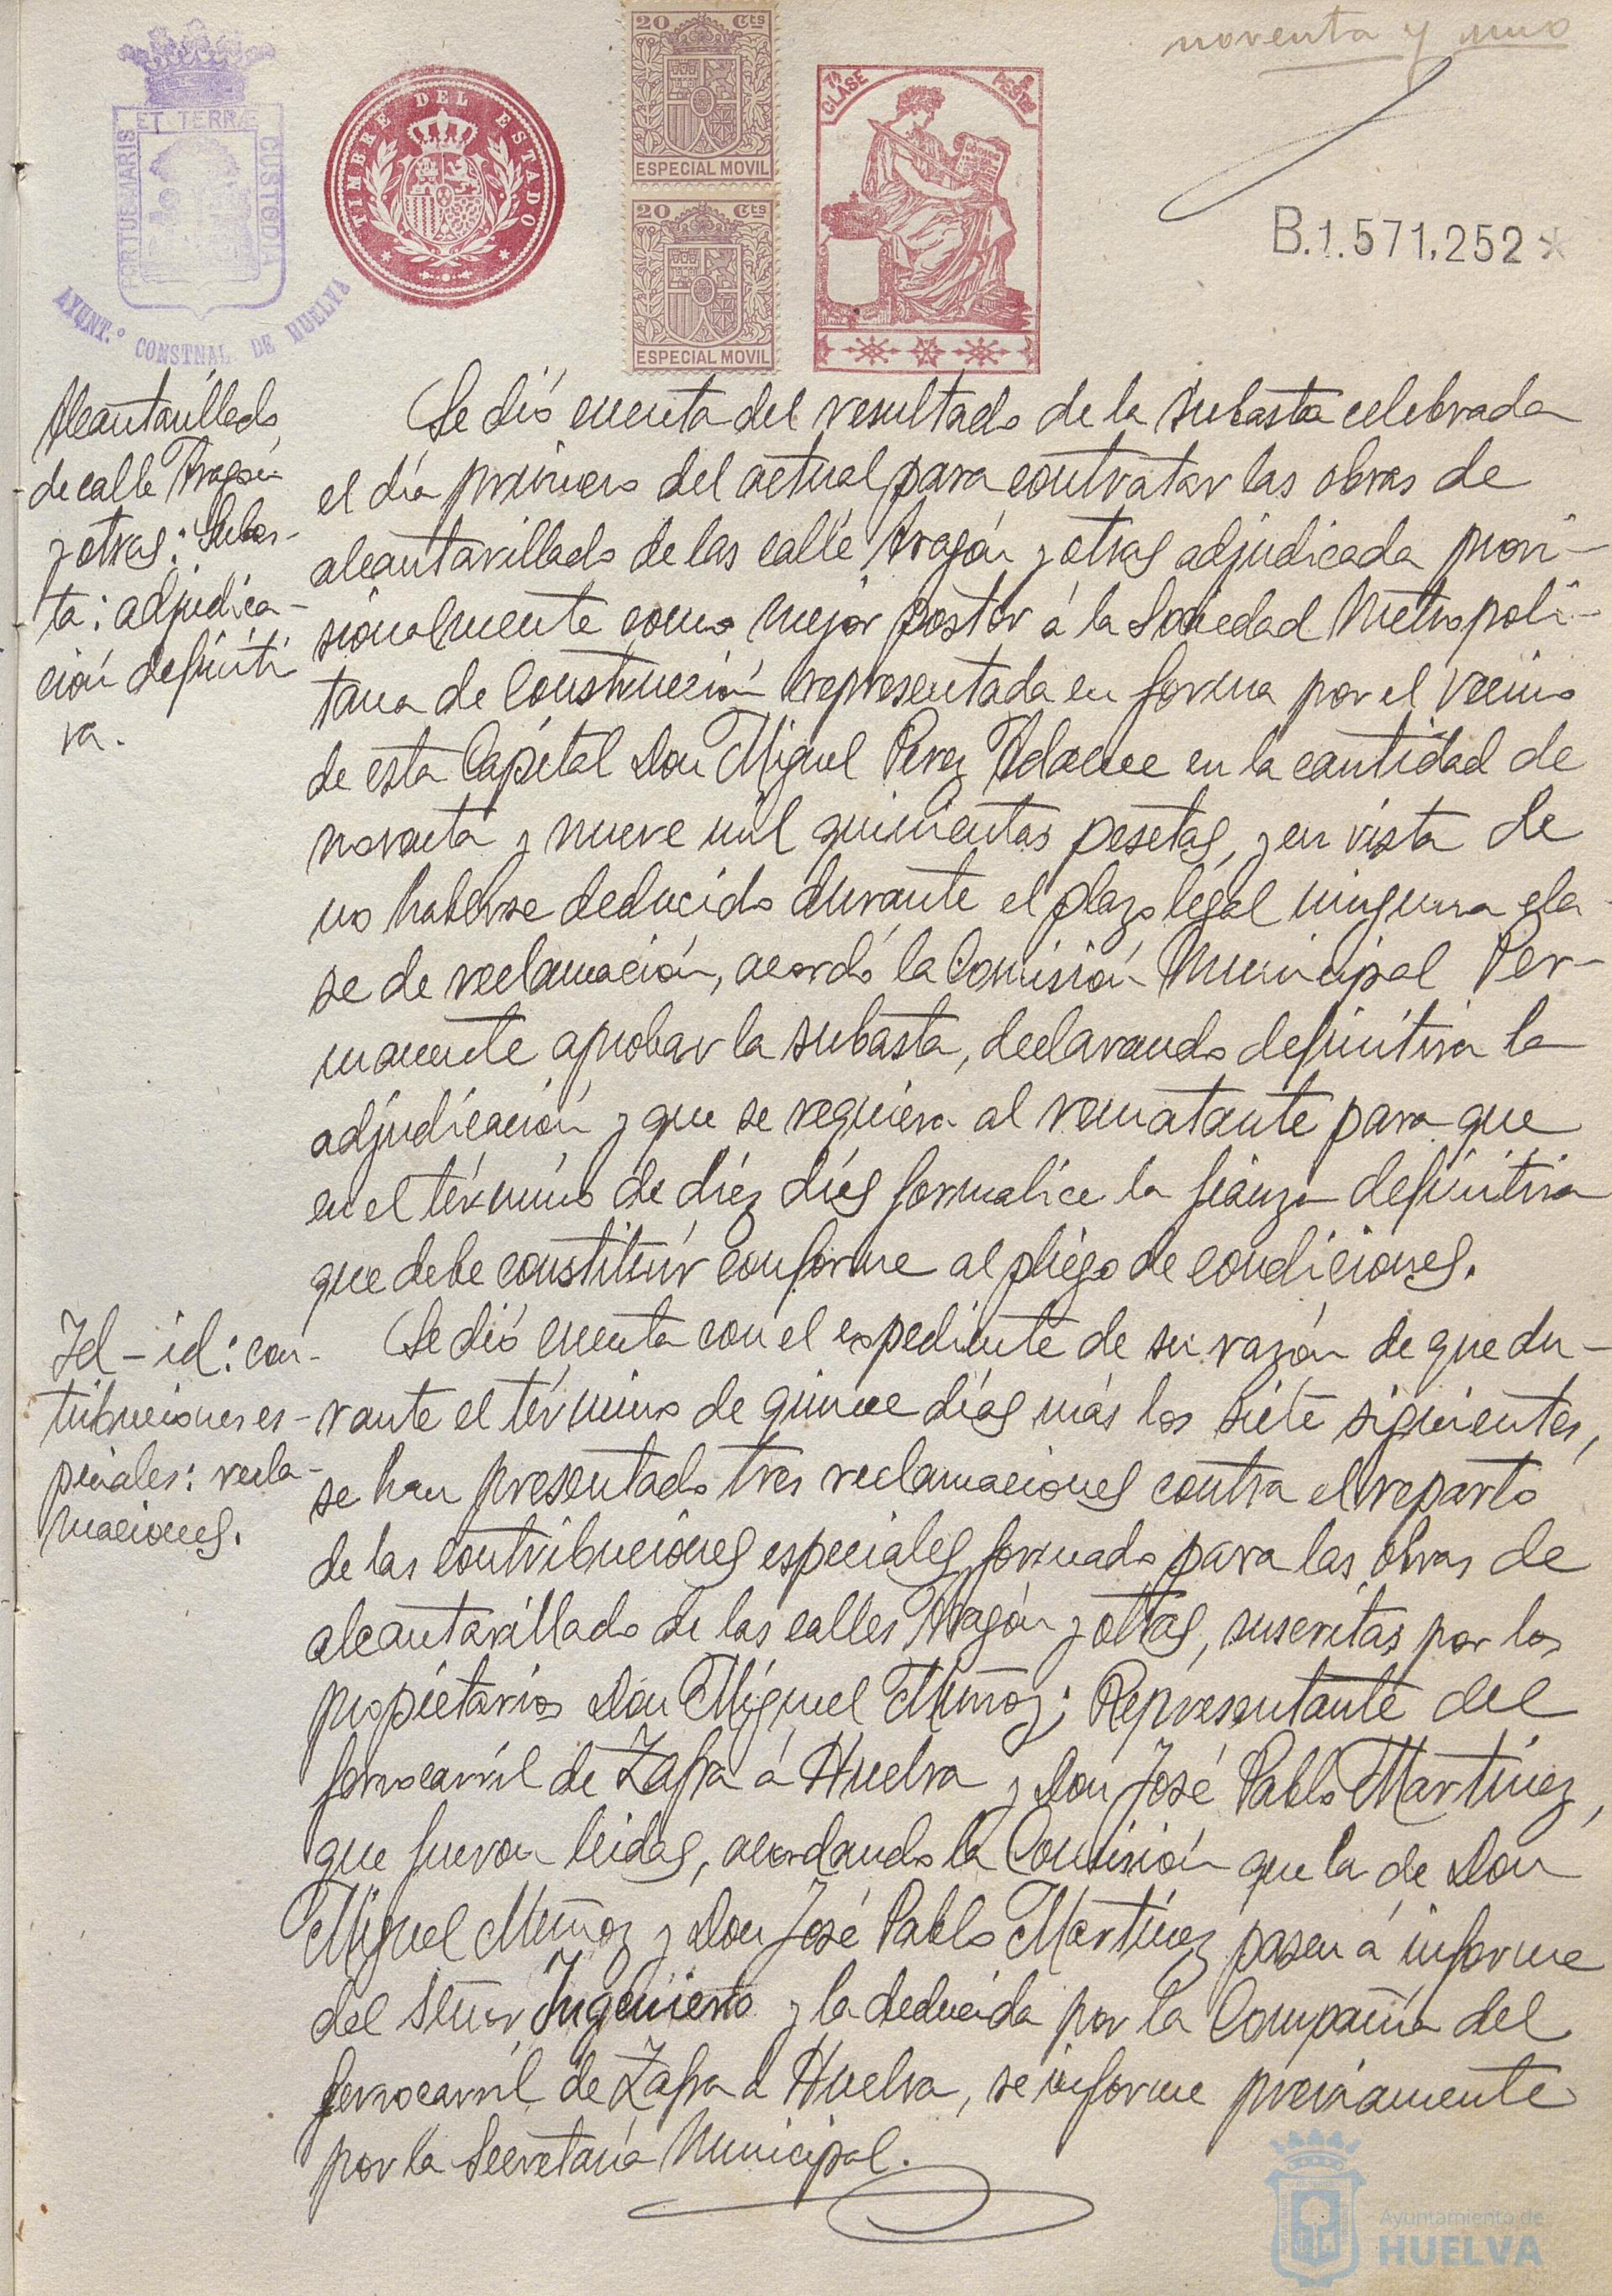 noventa y uno
PORTUS MARIS
ET TERRÆ
CUSTODIA
AYUNT.º CONSTNAL DE HUELVA
TIMBRE DEL ESTADO
20 Cts
ESPECIAL MOVIL
20 Cts
ESPECIAL MOVIL
CLASE
B.1.571.252*
Alcantarillado
de calle Aragón
y otras: Subas-
ta: adjudica-
ción definiti
va.
Se dió cuenta del resultado de la subasta celebrada
el día primero del actual para contratar las obras de
alcantarillado de las calle Aragón y otras adjudicada provi-
sionalmente como mejor postor á la Sociedad Metropoli-
tana de Construcción representada en forma por el vecino
de esta Capital Don Miguel Perez Adame en la cantidad de
noventa y nueve mil quinientas pesetas, y en vista de
no haberse deducido durante el plazo legal ninguna cla-
se de reclamación, acordó la Comisión Municipal Per-
manente aprobar la subasta, declarando definitiva la
adjudicación y que se requiera al rematante para que
en el término de diez días formalice la fianza definitiva
que debe constituir conforme al pliego de condiciones.
Id - id: con-
tribuciones es-
peciales: recla-
maciones.
Se dió cuenta con el expediente de su razón de que du-
rante el término de quince días más los siete siguientes,
se han presentado tres reclamaciones contra el reparto
de las contribuciones especiales formado para las obras de
alcantarillado de las calles Aragón y otras, suscritas por los
propietarios Don Miguel Muñoz; Representante del
ferrocarril de Zafra á Huelva y Don José Pablo Martínez,
que fueron leidas, acordando la Comisión que la de Don
Miguel Muñoz y Don José Pablo Martínez pasen á informe
del señor Ingeniero y la deducida por la Compañia del
ferrocarril de Zafra á Huelva, se informe previamente
por la Secretaría Municipal.
Ayuntamiento de
HUELVA